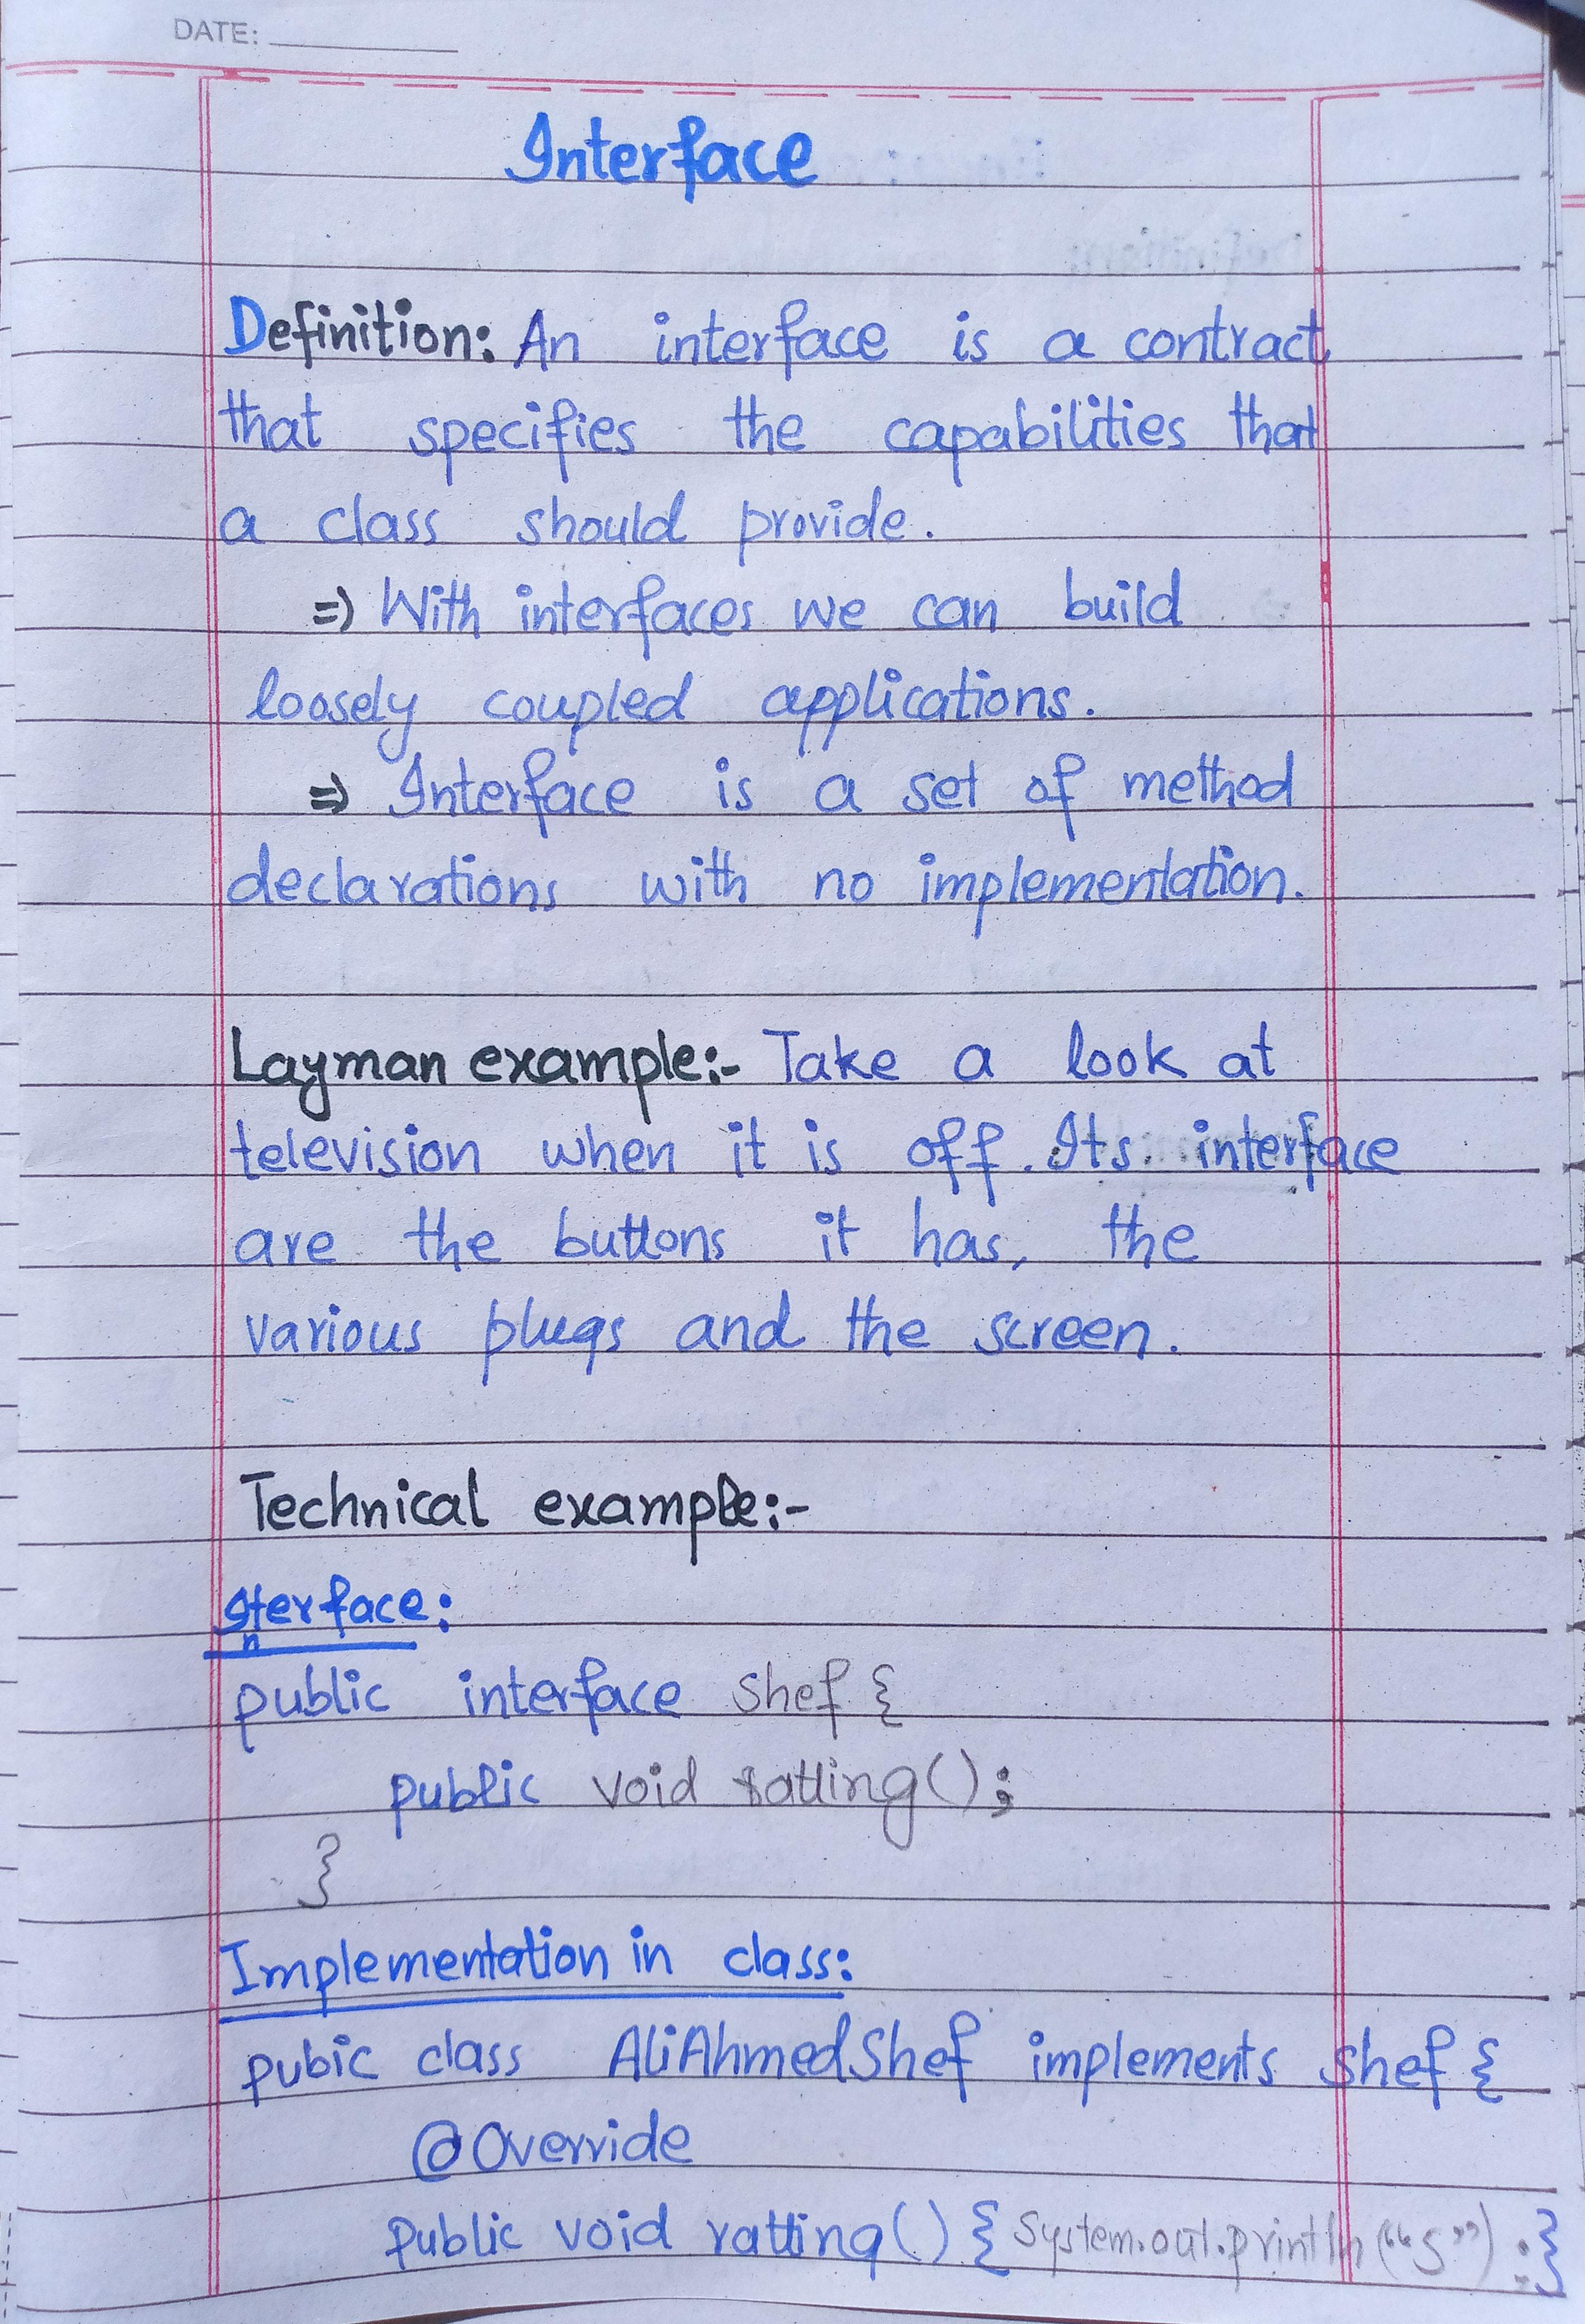 DATE:
Interface
Definition: An interface is a contract
that specifies the capabilities that
a class should provide.
=> With interfaces we can build
loosely coupled applications.
=> Interface is a set of method
declarations with no implementation.
Layman example:- Take a look at
television when it is off. Its interface
are the buttons it has, the
various plugs and the screen.
Technical example:-
Interface:
public interface Shef {
public void ratting();
}
Implementation in class:
pubic class AliAhmedShef implements Shef {
@Override
Public void ratting() { System.out.println("5");}